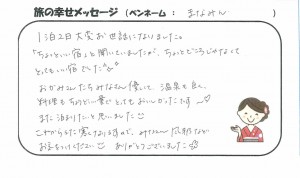 旅の幸せメッセージ (ペンネーム : まなみん )
1泊2日大変お世話になりました。
"ちょっといい宿"と聞いていましたが、ちょっとどころじゃなくて
とってもいい宿でした
おかみさんたちみなさん優しくて、温泉も良く
料理もちょうどいい量でとってもおいしかったです
また泊まりたいと思いました
これからまた寒くなりますので、みなさん風邪など
お気をつけください ありがとうございました